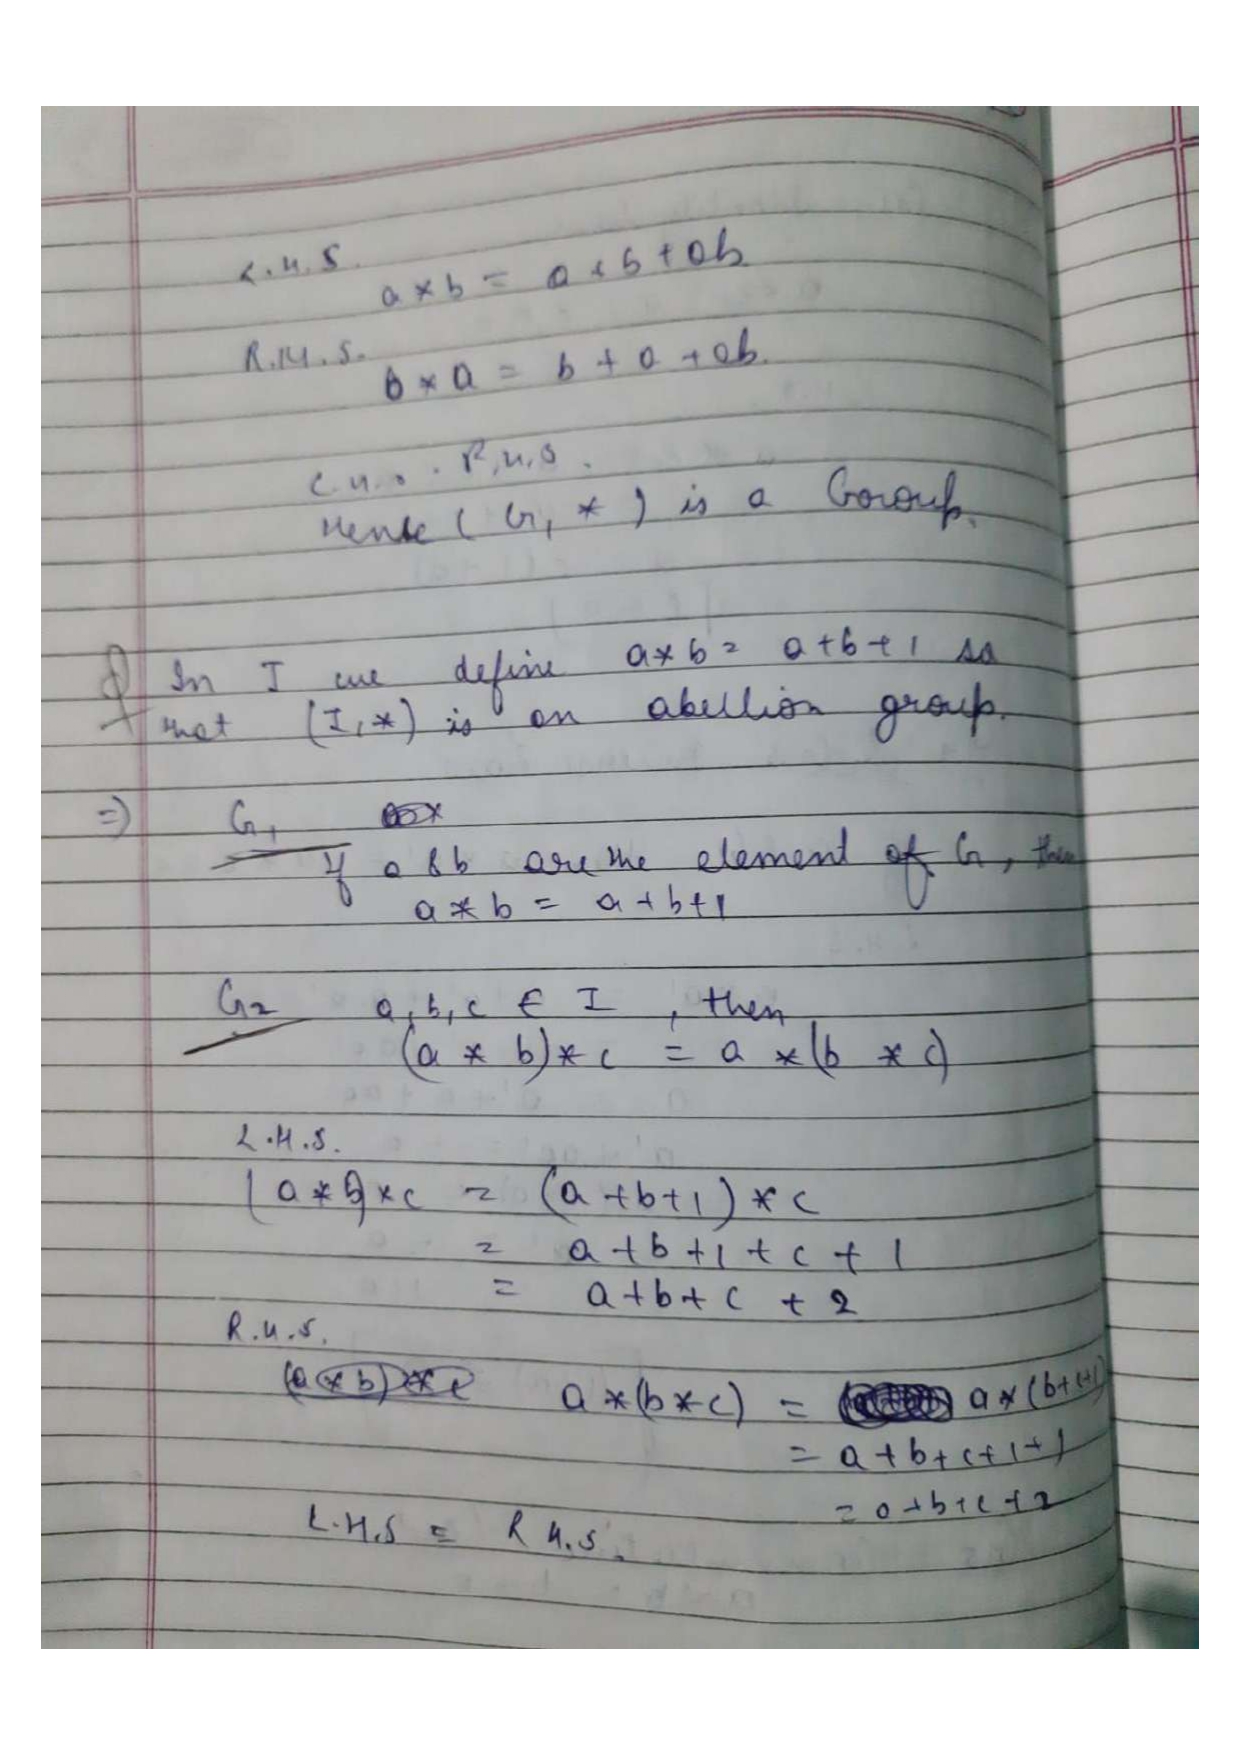 L.H.S.
a * b = a + b + ab
R.H.S.
b * a = b + a + ab.
R.H.S.
Hence (G, *) is a Group.
Q In I we define a * b = a + b + 1 so
that (I, *) is an abellion group.
=> G1
If a & b are the element of G, then
a * b = a + b + 1
G2 a, b, c ∈ I, then
(a * b) * c = a * (b * c)
L.H.S.
(a * b) * c = (a + b + 1) * c
= a + b + 1 + c + 1
= a + b + c + 2
R.H.S.
a * (b * c) = a * (b + c + 1)
= a + b + c + 1 + 1
= a + b + c + 2
L.H.S = R.H.S.